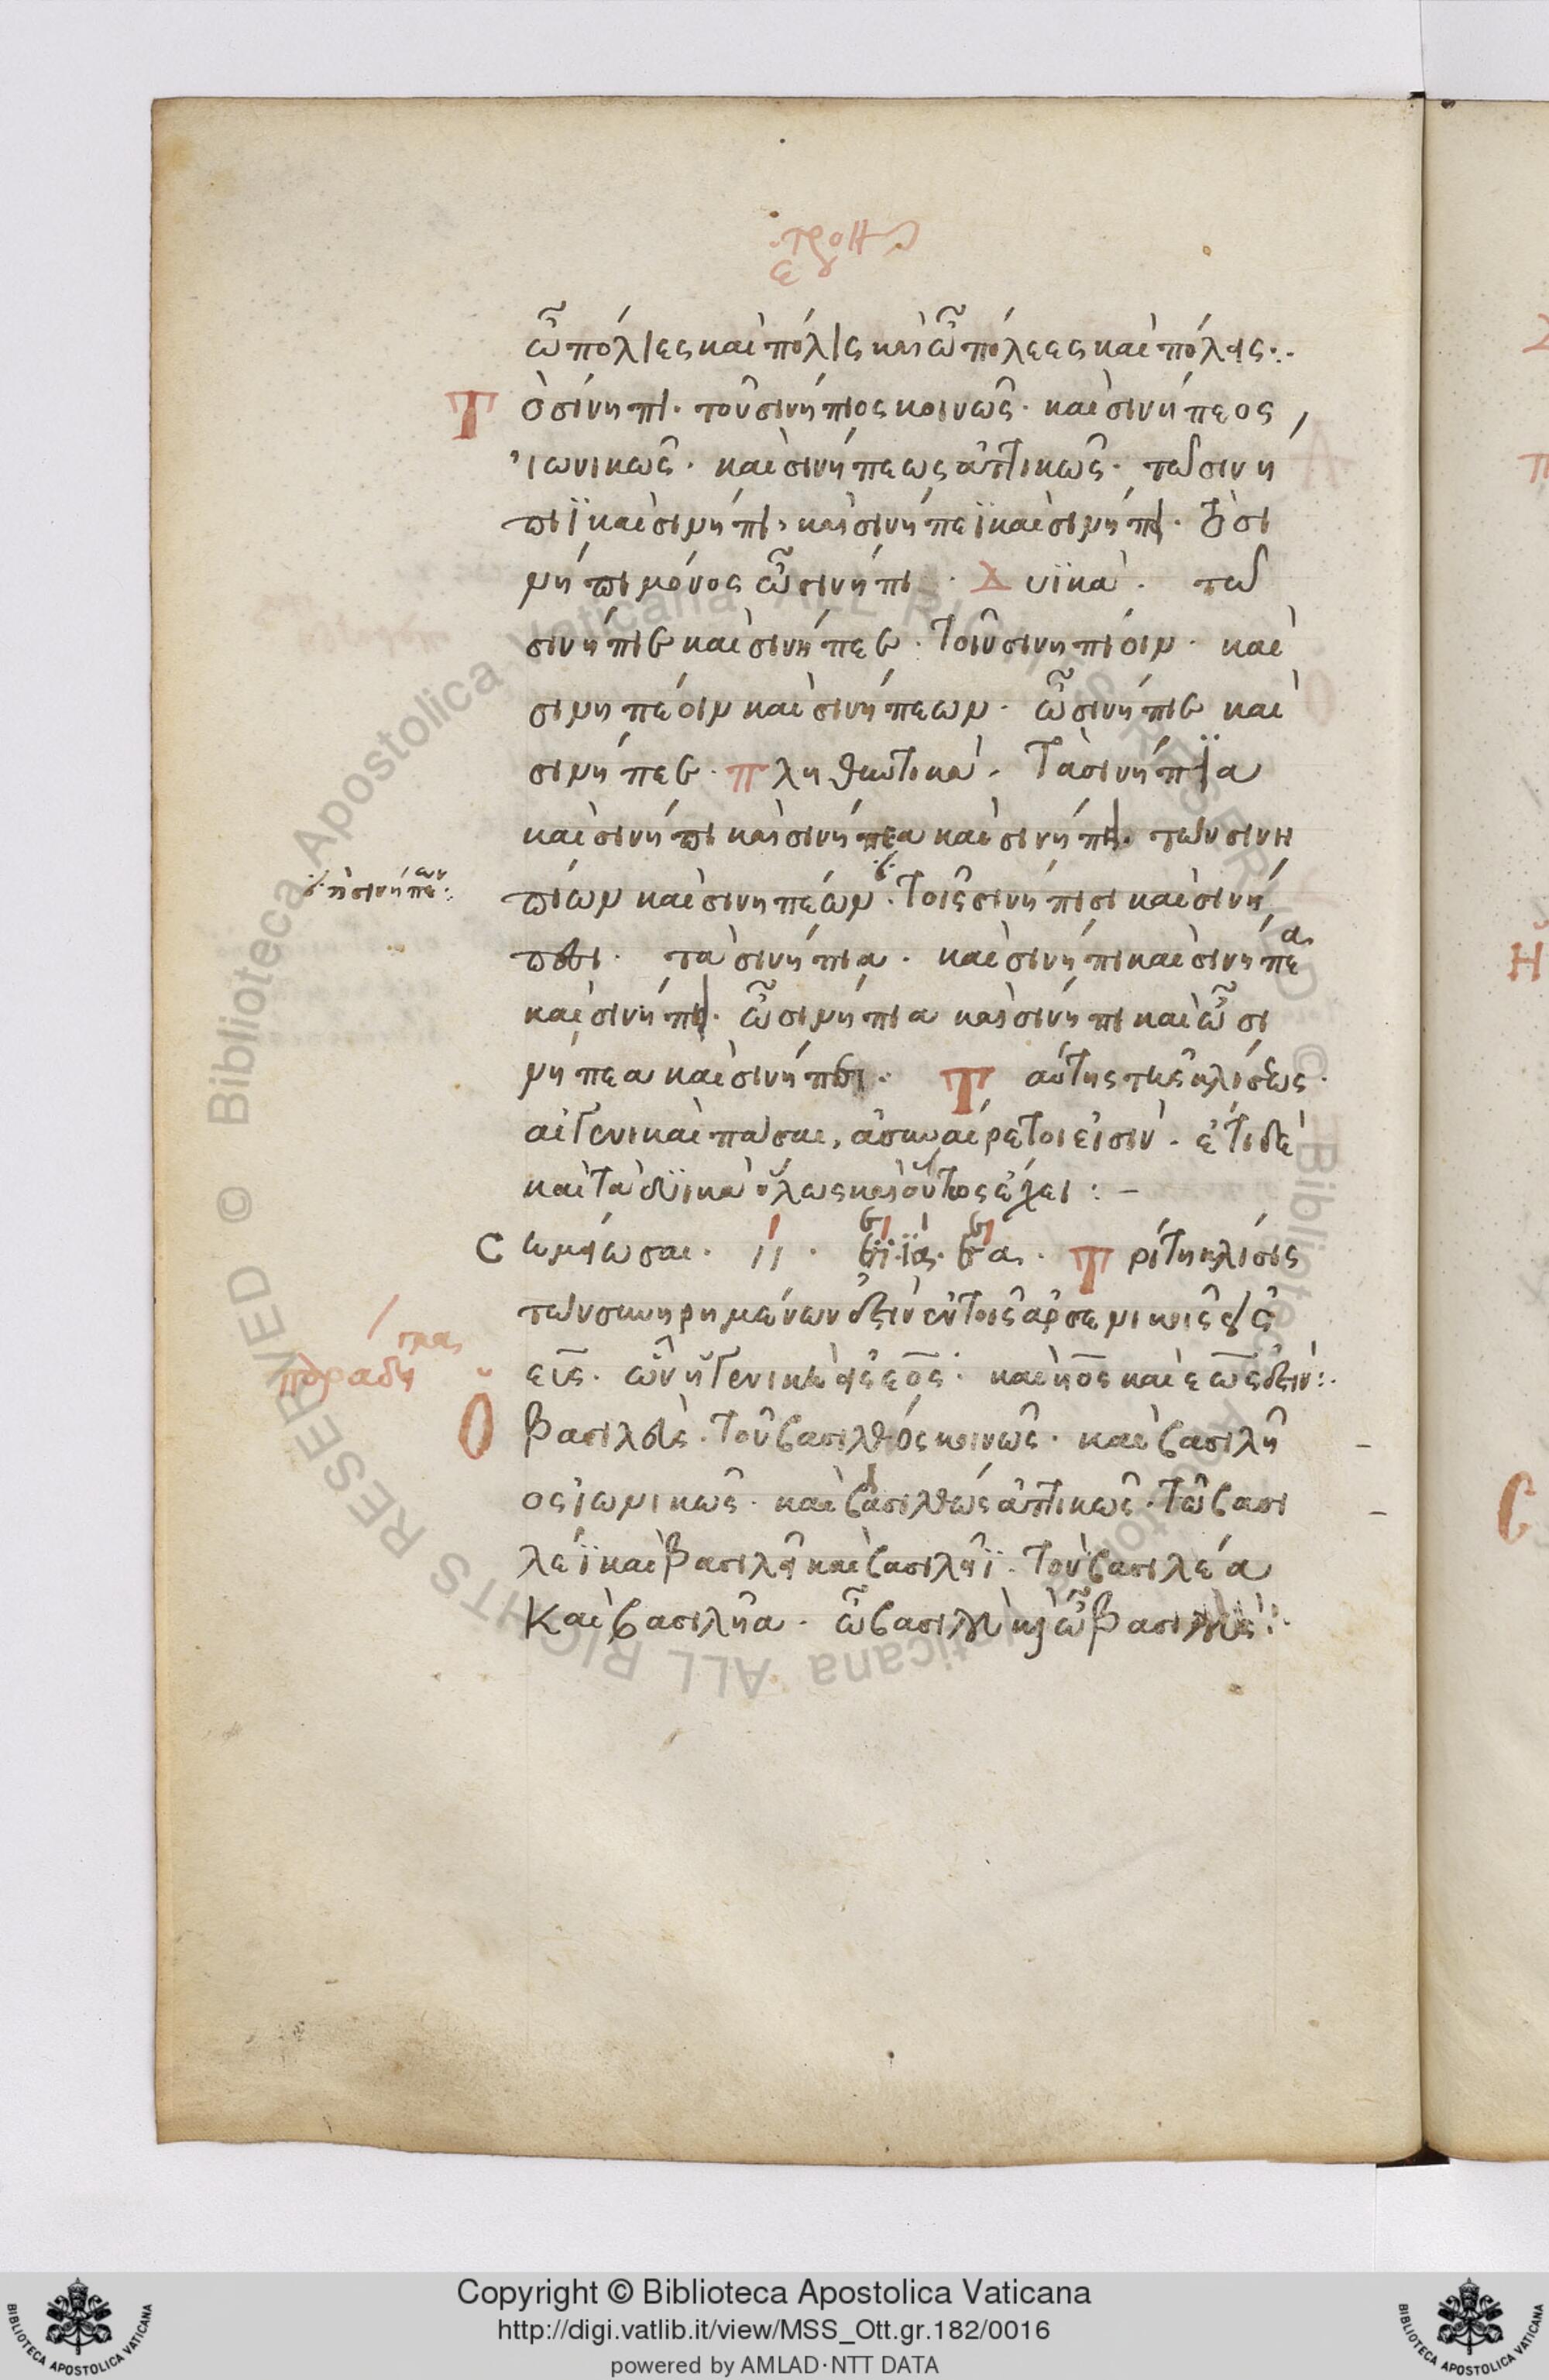 ὦ πόλιες καὶ πόλις καὶ ὦ πόλεες καὶ πόλεις:.
Τὸ σίνηπι· τοῦ σινήπιος κοινῶς· καὶ σινήπεος
ἰωνικῶς· καὶ σινήπεως ἀττικῶς· τῶ σινη
πιϊ καὶ σινήπι, καὶ σινήπεϊ καὶ σινήπει· τὸ σί
νηπι μόνος ὦ σίνηπι· Δυϊκά· τὼ
σινήπιε καὶ σινήπεε· τοῖν σινηπίοιν· καὶ
σινηπέοιν καὶ σινήπεων· ὦ σινήπιε καὶ
σινήπεε· πληθυντικά· Τὰ σινήπϊα
καὶ σινήπι καὶ σινήπεα καὶ σινήπη· τῶν σινη
πίων καὶ σινηπέων· τοῖς σινήπισι καὶ σινή
πεσι· τὰ σινήπια· καὶ σινήπι καὶ σινήπεα
καὶ σινήπη· ὦ σινήπια καὶ σινήπι καὶ ὦ σι
νήπεα καὶ σινήπει· Ταύτης τῆς κλίσεως
αἱ γενικαὶ πᾶσαι, ἀσυναίρετοί εἰσιν· ἔτι δὲ
καὶ τὰ δυϊκὰ ὅλως καὶ οὕτως ἔχει:–
Τρίτη κλίσις
τῶν συνηρημένων ἐστὶν ἐν τοῖς ἀρσενικοῖς
εις· ὧν ἡ γενικὴ εἰς εος· καὶ ηος καὶ εως ἐστίν:.
Ὁ βασιλεύς· τοῦ βασιλέος κοινῶς· καὶ βασιλῆ
ος ἰωνικῶς· καὶ βασιλέως ἀττικῶς· τῶ βασι
λέϊ καὶ βασιλεῖ καὶ βασιλῆϊ· τὸν βασιλέα
καὶ βασιλῆα· ὦ βασιλεῦ καὶ ὦ βασιλεύς:.
Copyright © Biblioteca Apostolica Vaticana
http://digi.vatlib.it/view/MSS_Ott.gr.182/0016
powered by AMLAD·NTT DATA